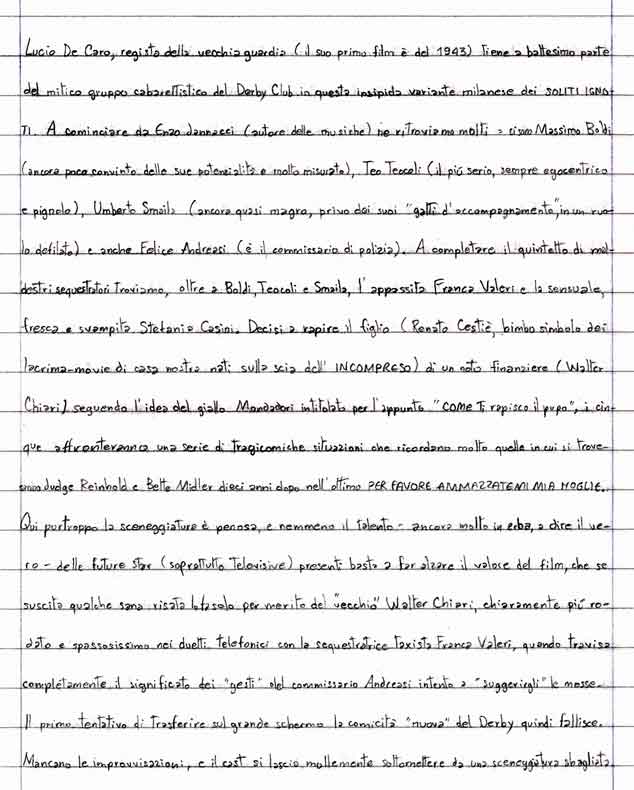 Lucio De Caro, regista della vecchia guardia (il suo primo film è del 1943) tiene a battesimo parte
del mitico gruppo cabarettistico del Derby Club in questa insipida variante milanese dei SOLITI IGNO-
TI. A cominciare da Enzo Jannacci (autore delle musiche) ne ritroviamo molti: ci sono Massimo Boldi
(ancora poco convinto delle sue potenzialità e molto misurato), Teo Teocoli (il più serio, sempre egocentrico
e pignolo), Umberto Smaila (ancora quasi magro, privo dei suoi "gatti d'accompagnamento", in un ruo-
lo defilato) e anche Felice Andreasi (è il commissario di polizia). A completare il quintetto di mal-
destri sequestratori troviamo, oltre a Boldi, Teocoli e Smaila, l'appassita Franca Valeri e la sensuale,
fresca e svampita Stefania Casini. Decisi a rapire il figlio (Renato Cestiè, bimbo simbolo dei
lacrima-movie di casa nostra nati sulla scia dell' INCOMPRESO) di un noto finanziere (Walter
Chiari) seguendo l'idea del giallo Mondadori intitolato per l'appunto "COME TI rapisco il pupo", i cin-
que affronteranno una serie di tragicomiche situazioni che ricordano molto quelle in cui si trove-
ranno Judge Reinhold e Bette Midler dieci anni dopo nell'ottimo PER FAVORE AMMAZZATEMI MIA MOGLIE.
Qui purtroppo la sceneggiatura è penosa, e nemmeno il talento - ancora molto in erba, a dire il ve-
ro - delle future star (soprattutto televisive) presenti basta a far alzare il valore del film, che se
suscita qualche sana risata lo fa solo per merito del "vecchio" Walter Chiari, chiaramente più ro-
dato e spassosissimo nei duetti telefonici con la sequestratrice taxista Franca Valeri, quando travisa
completamente il significato dei "gesti" del commissario Andreasi intento a "suggerirgli" le mosse.
Il primo tentativo di trasferire sul grande schermo la comicità "nuova" del Derby quindi fallisce.
Mancano le improvvisazioni, e il cast si lascia mollemente sottomettere da una sceneggiatura sbagliata